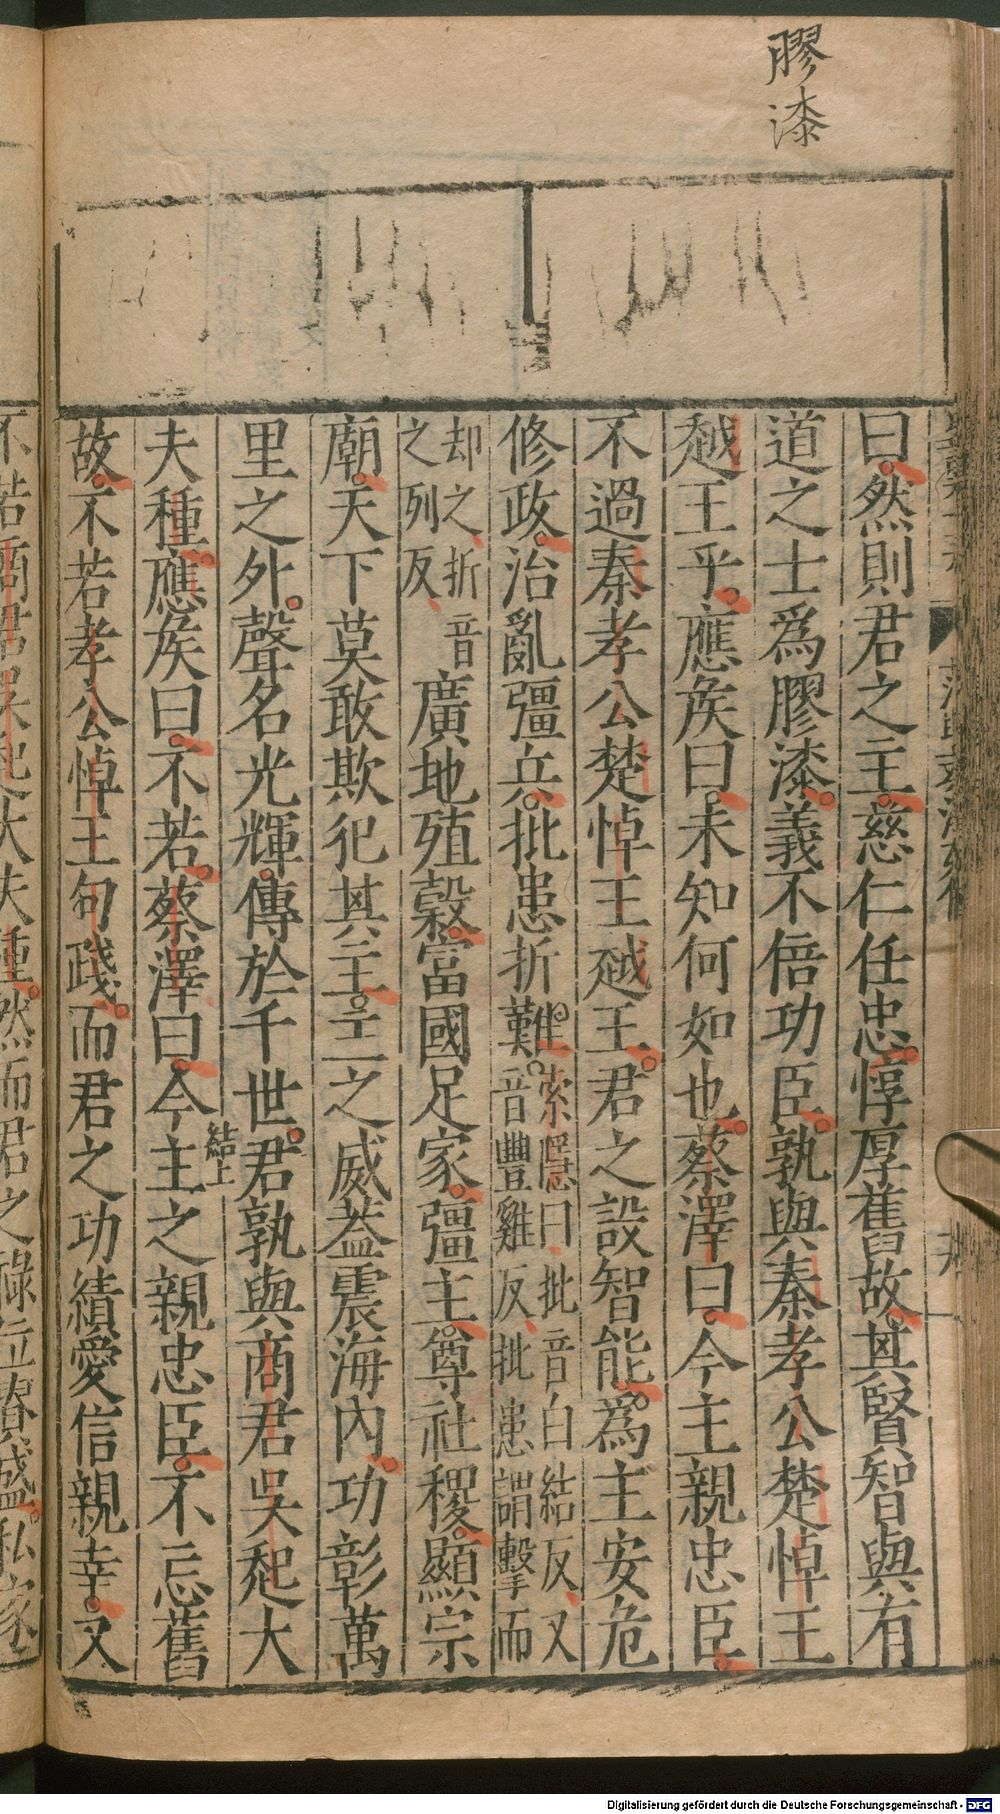 膠漆
曰然則君之主慈仁任忠惇厚舊故其賢智與有
道之士爲膠漆義不倍功臣孰與秦孝公楚悼王
越王乎應矦曰未知何如也蔡澤曰今主親忠臣
不過秦孝公楚悼王越王君之設智能爲主安危
修政治亂彊兵批患折難
索隱曰批音白結反又
音豐雞反批患謂擊而
却之折音
之列反
廣地殖穀富國足家彊主尊社稷顯宗
廟天下莫敢欺犯其主主之威蓋震海內功彰萬
里之外聲名光輝傳於千世君孰與商君吳起大
結上
夫種應矦曰不若蔡澤曰今主之親忠臣不忘舊
故不若孝公悼王句踐而君之功績愛信親幸又
不若商君吳起大夫種然而君之祿位貴盛私家
Digitalisierung gefördert durch die Deutsche Forschungsgemeinschaft - DFG